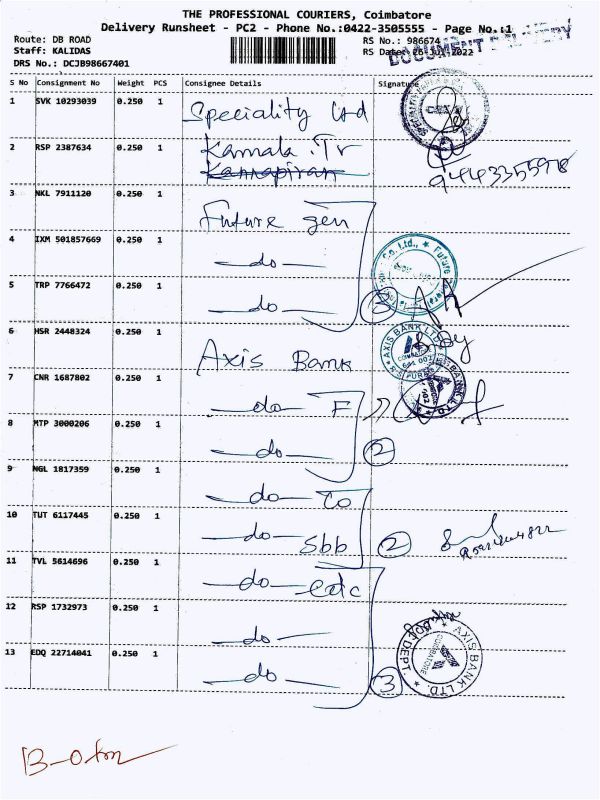 THE PROFESSIONAL COURIERS, Coimbatore
Delivery Runsheet - PC2 - Phone No.:0422-3505555 - Page No.:1
Route: DB ROAD
Staff: KALIDAS
DRS No.: DCJB98667401
RS No.: 986674
RS Date: 26-Jul-2022
DOCUMENT DELIVERY
S No Consignment No Weight PCS Consignee Details Signature
1 SVK 10293039 0.250 1 Speciality Ltd
2 RSP 2387634 0.250 1 Kamala.Tr
Kannapiran
9443355978
3 NKL 7911120 0.250 1 Future gen
4 IXM 501857669 0.250 1 -do-
5 TRP 7766472 0.250 1 -do- 3
Co. Ltd., * Future
6 HSR 2448324 0.250 1 Axis Bank
AXIS BANK LTD
7 CNR 1687802 0.250 1 -do- F
8 MTP 3000206 0.250 1 -do- 2
9 NGL 1817359 0.250 1 -do- Co
10 TUT 6117445 0.250 1 -do- Sbb 2
11 TVL 5614696 0.250 1 -do- cdc
12 RSP 1732973 0.250 1 -do-
13 EDQ 22714041 0.250 1 -do- 3
AXIS BANK LTD. * DEPT.
COIMBATORE